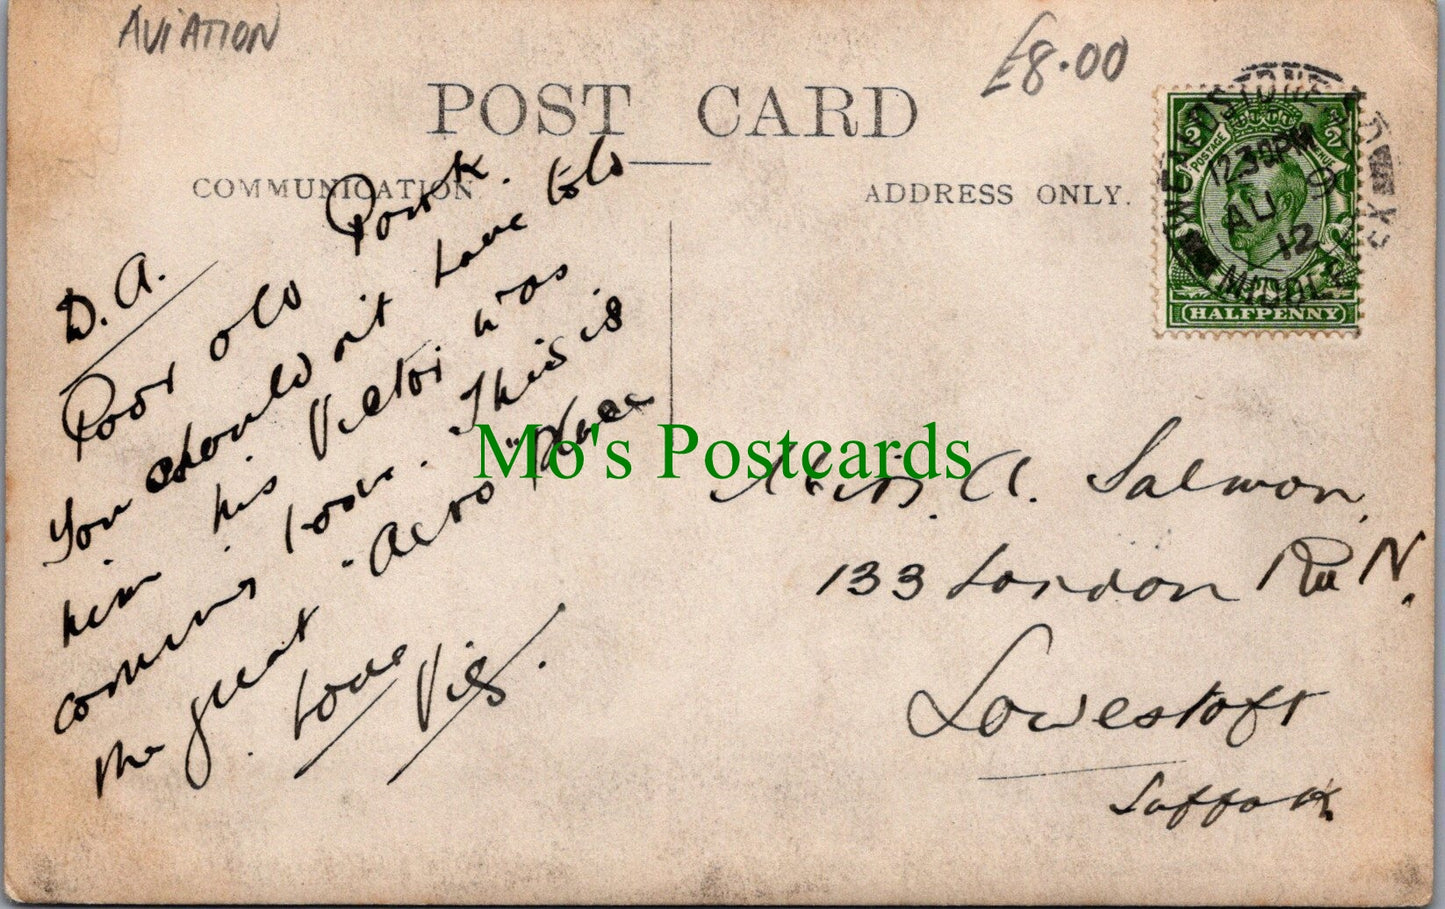 AVIATION
£8.00
POST CARD
COMMUNICATION
ADDRESS ONLY.
WEALDSTONE
12.30PM
AU 9
12
MIDDLESEX
POSTAGE
HALFPENNY
D. A.
Poor old Pork.
You should n't have told
him his Victor was
coming love. This is
the great "Aero" place
Love
Vic.
Mo's Postcards
Miss. A. Salmon,
133 London Rd N.
Lowestoft
Suffolk.